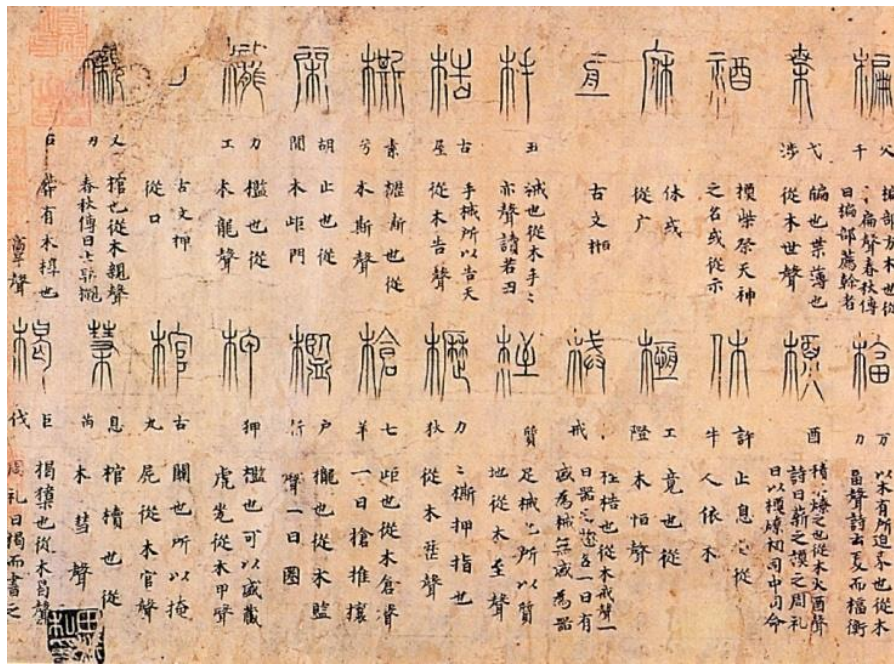 楄
父千
楄部方木也從
〻扁聲春秋傳
曰楄部薦榦者
枼
弋涉
牑也枼薄也
從木世聲
禉
槱柴祭天神
之名或從示
庥
休或
從广
古文
杽
丑
械也從木手〻
亦聲讀若丑
梏
古屋
手械所以告天
從木告聲
㯕
素兮
櫪㯕也從
木斯聲
閑
胡閒
止也從
木歫門
櫳
力工
檻也從
木龍聲
古文柙
從口
櫬
叉刃
棺也從木親聲
春秋傳曰士輿櫬
葬有木槨也
聲
楅
方力
以木有所逼束也從木
畐聲詩云夏而楅衡
槱
酉
積火燎之也從木火酉聲
詩曰薪之槱之周礼
曰以槱燎祠司中司命
休
許牛
止息也從
人依木
㮓
工隥
竟也從
木恒聲
械
戒
桎梏也從木戒聲一
曰器之總名一曰有
盛為械無盛為器
桎
質
足械也所以質
地從木至聲
櫪
力狄
〻㯕押指也
從木歷聲
槍
七羊
歫也從木倉聲
一曰槍推攘
檻
戶行
櫳也從木監
聲一曰圈
柙
狎
檻也可以盛藏
虎兕從木甲聲
棺
古丸
關也所以掩
屍從木官聲
槥
息芮
棺櫝也從
木彗聲
楬
巨伐
楬㯳也從木曷聲
周礼曰楬而書之